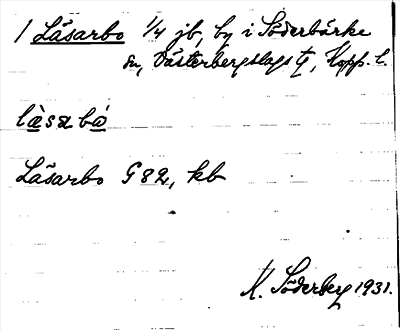 1 Läsarbo 1/4 jb, by i Söderbärke
sn, Västerbergslags tg, Kopp. l.
làsabó
Läsarbo G 82, kb
K. Söderberg 1931.